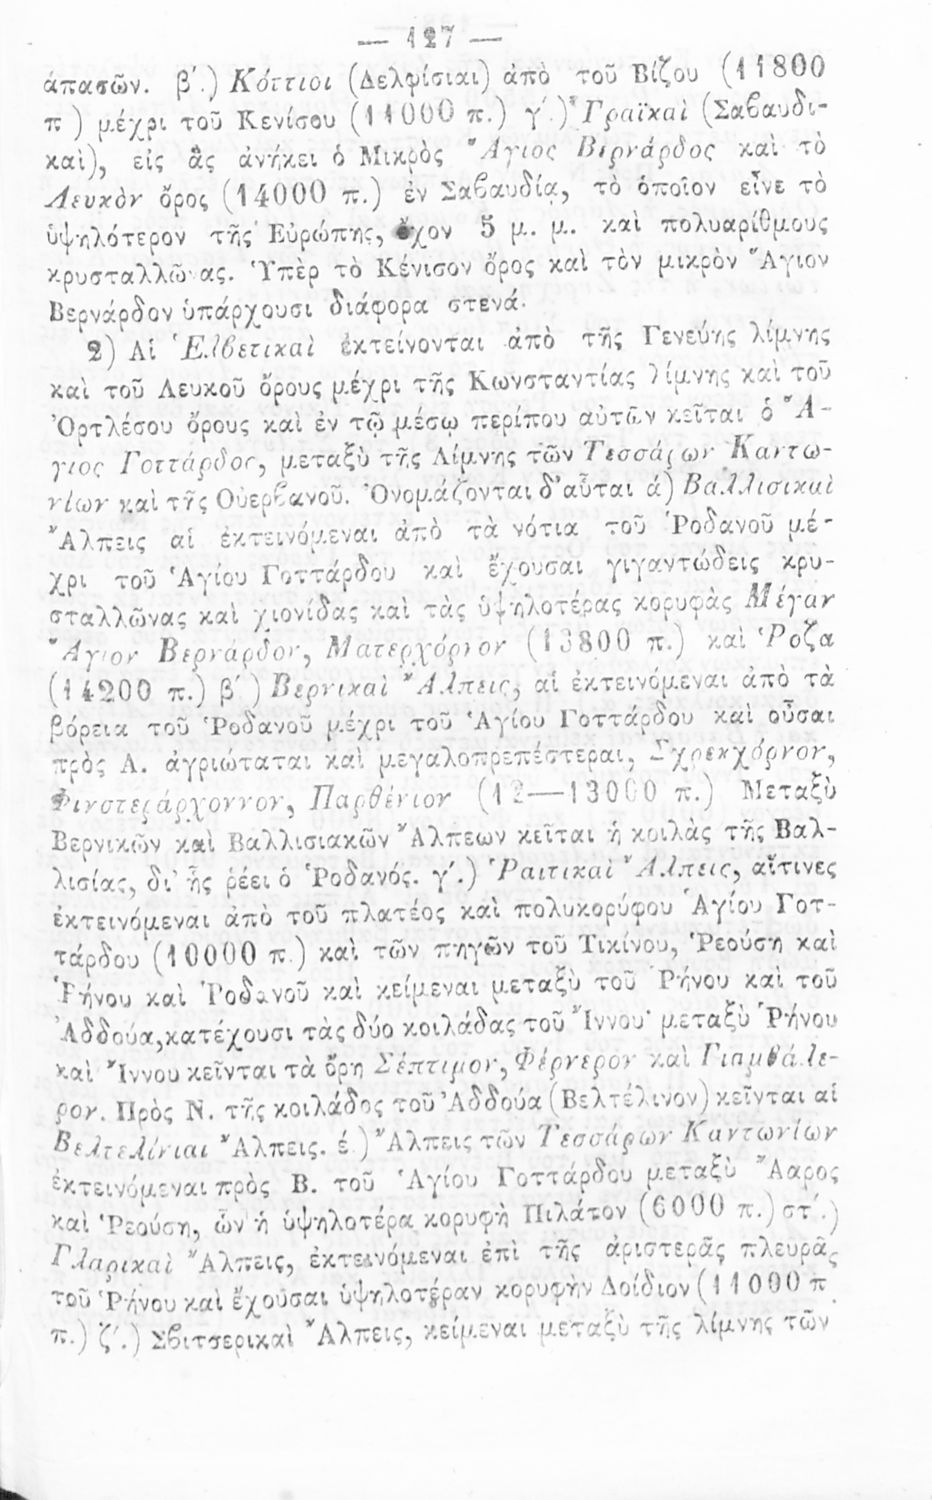 — 127 —
ἁπασῶν. β΄.) Κόττιοι (Δελφίσιαι) ἀπὸ τοῦ Βίζου (11800
π ) μέχρι τοῦ Κενίσου (11000 π.) γ΄.) Γραϊκαὶ (Σαβαυδι-
καὶ), εἰς ἃς ἀνήκει ὁ Μικρὸς Ἅγιος Βερνάρδος καὶ τὸ
Λευκὸν ὄρος (14000 π.) ἐν Σαβαυδίᾳ, τὸ ὁποῖον εἶνε τὸ
ὑψηλότερον τῆς Εὐρώπης, ἔχον 5 μ. μ. καὶ πολυαρίθμους
κρυσταλλῶνας. Ὑπὲρ τὸ Κένισον ὄρος καὶ τὸν μικρὸν Ἅγιον
Βερνάρδον ὑπάρχουσι διάφορα στενά.
2) Αἱ Ἑλβετικαὶ ἐκτείνονται ἀπὸ τῆς Γενεύης λίμνης
καὶ τοῦ Λευκοῦ ὄρους μέχρι τῆς Κωνσταντίας λίμνης καὶ τοῦ
Ὀρτλέσου ὄρους καὶ ἐν τῷ μέσῳ περίπου αὐτῶν κεῖται ὁ Ἅ-
γιος Γοττάρδος, μεταξὺ τῆς Λίμνης τῶν Τεσσάρων Καντω-
νίων καὶ τῆς Οὐερβανοῦ. Ὀνομάζονται δ' αὗται ά) Βαλλισικαὶ
Ἄλπεις αἱ ἐκτεινόμεναι ἀπὸ τὰ νότια τοῦ Ῥοδανοῦ μέ-
χρι τοῦ Ἁγίου Γοττάρδου καὶ ἔχουσαι γιγαντώδεις κρυ-
σταλλῶνας καὶ χιονίδας καὶ τὰς ὑψηλοτέρας κορυφὰς Μέγαν
Ἅγιον Βερνάρδον, Ματερχόρνον (13800 π.) καὶ Ῥοζα
(14200 π.) β΄) Βερνικαὶ Ἄλπεις, αἱ ἐκτεινόμεναι ἀπὸ τὰ
βόρεια τοῦ Ῥοδανοῦ μέχρι τοῦ Ἁγίου Γοττάρδου καὶ οὖσαι
πρὸς Α. ἀγριώταται καὶ μεγαλοπρεπέστεραι, Σχρεκχόρνον,
Φινστεράρχοννον, Παρθένιον (12—13000 π.) Μεταξὺ
Βερνικῶν καὶ Βαλλισιακῶν Ἄλπεων κεῖται ἡ κοιλὰς τῆς Βαλ-
λισίας, δι' ἧς ῥέει ὁ Ῥοδανός. γ΄.) Ῥαιτικαὶ Ἄλπεις, αἵτινες
ἐκτεινόμεναι ἀπὸ τοῦ πλατέος καὶ πολυκορύφου Ἁγίου Γοτ-
τάρδου (10000 π.) καὶ τῶν πηγῶν τοῦ Τικίνου, Ῥεούση καὶ
Ῥήνου καὶ Ῥοδανοῦ καὶ κείμεναι μεταξὺ τοῦ Ῥήνου καὶ τοῦ
Ἀδδούα, κατέχουσι τὰς δύο κοιλάδας τοῦ Ἴννου· μεταξὺ Ῥήνου
καὶ Ἴννου κεῖνται τὰ ὄρη Σέπτιμον, Φέρνερον καὶ Γιαμβάλε-
ρον. Πρὸς Ν. τῆς κοιλάδος τοῦ Ἀδδούα (Βελτέλινον) κεῖνται αἱ
Βελτελίνιαι Ἄλπεις. έ) Ἄλπεις τῶν Τεσσάρων Καντωνίων
ἐκτεινόμεναι πρὸς Β. τοῦ Ἁγίου Γοττάρδου μεταξὺ Ἄαρος
καὶ Ῥεούση, ὧν ἡ ὑψηλοτέρα κορυφὴ Πιλάτον (6000 π.) στ΄.)
Γλαρικαὶ Ἄλπεις, ἐκτεινόμεναι ἐπὶ τῆς ἀριστερᾶς πλευρᾶς
τοῦ Ῥήνου καὶ ἔχουσαι ὑψηλοτέραν κορυφὴν Δοίδιον (11000 π
π.) ζ΄.) Σβιτσερικαὶ Ἄλπεις, κείμεναι μεταξὺ τῆς λίμνης τῶν